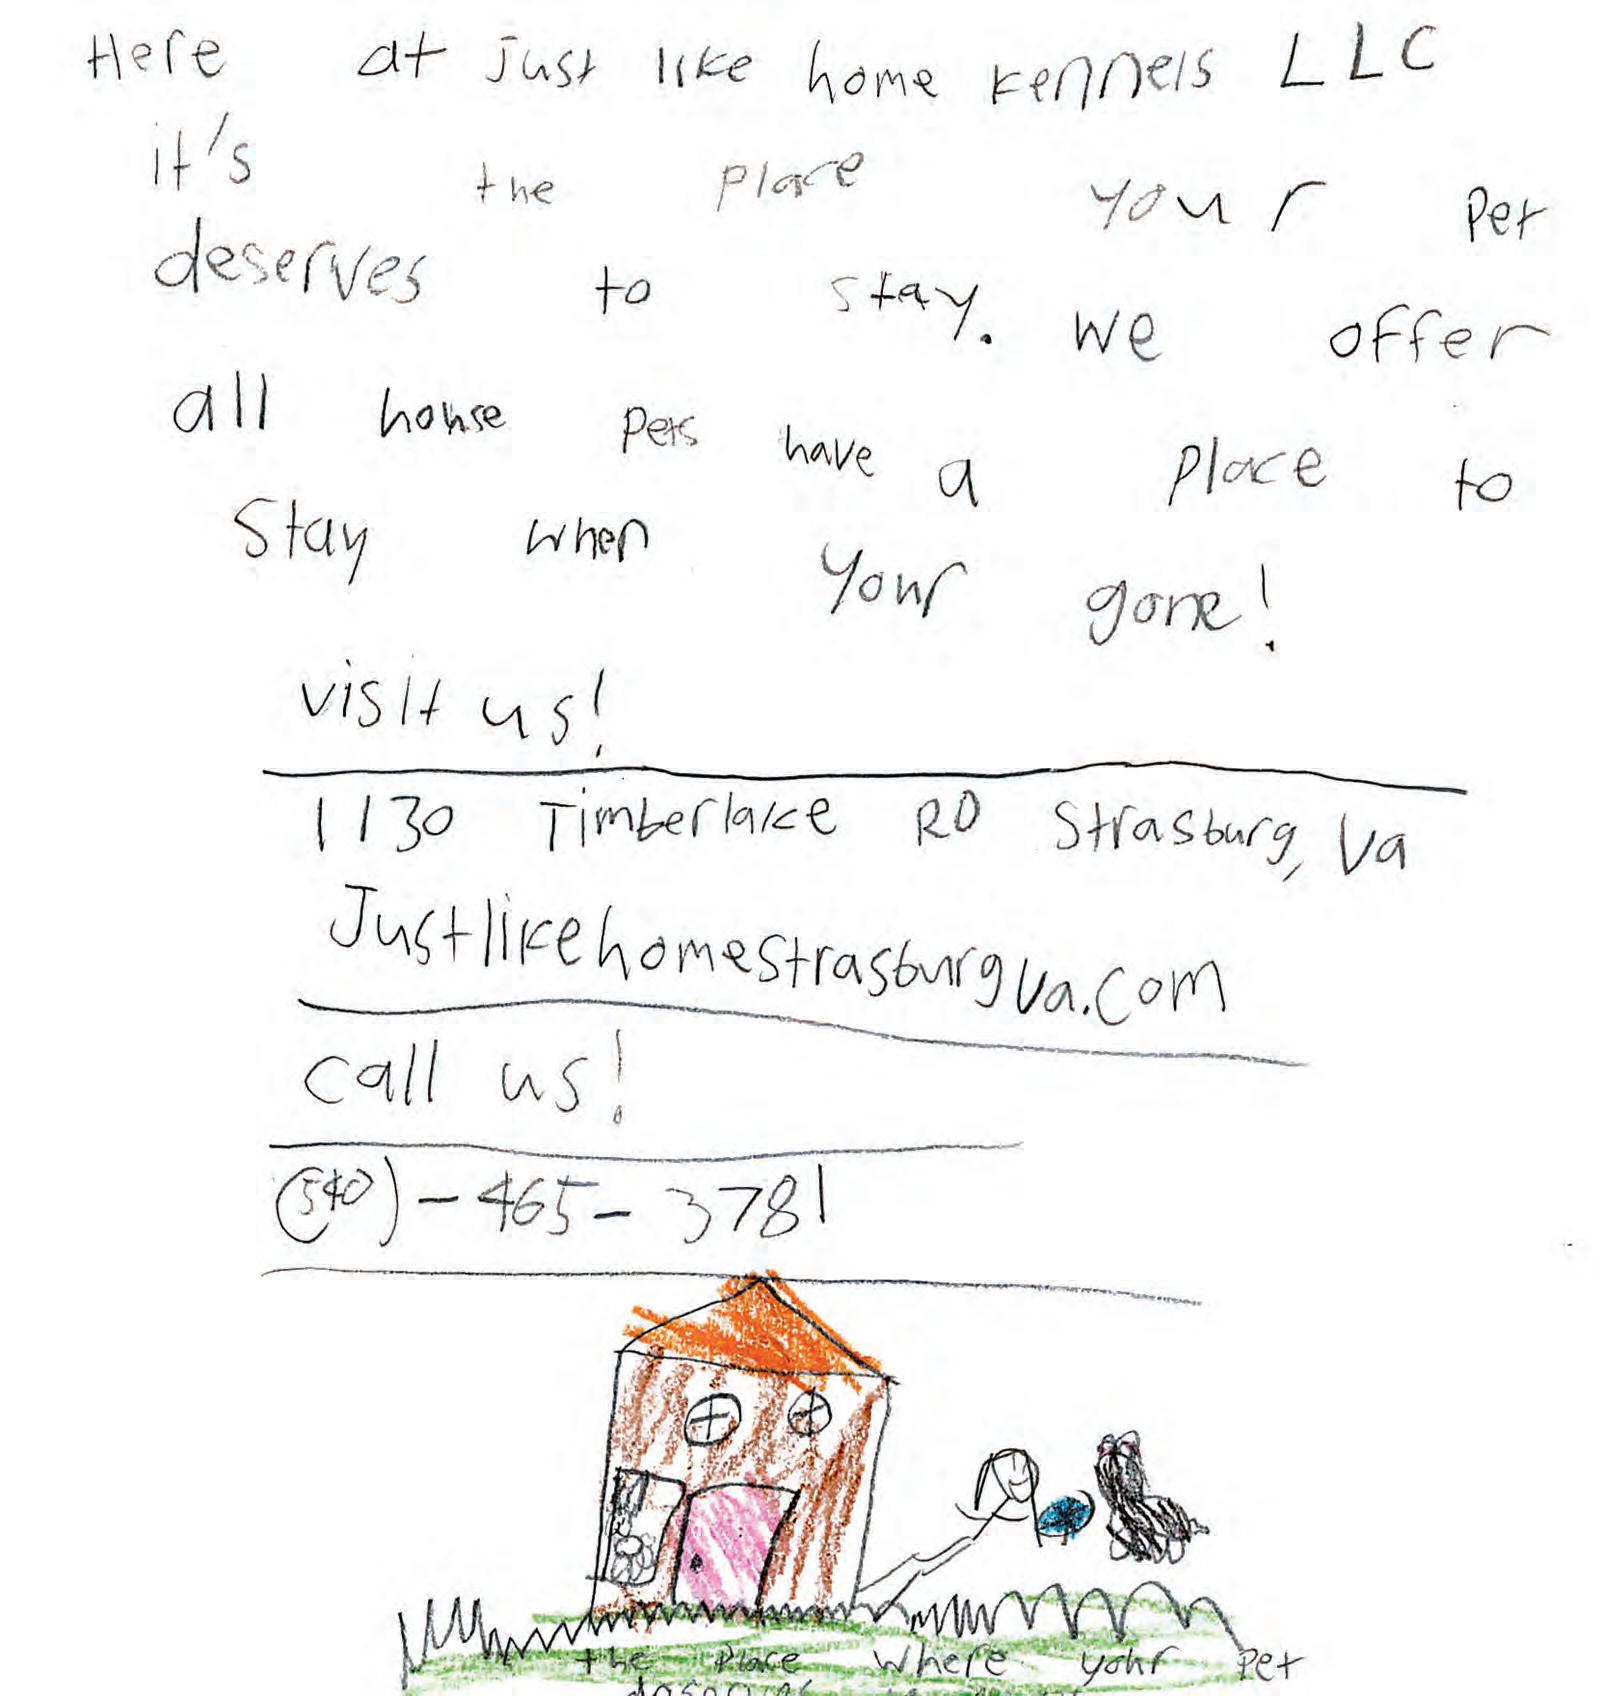 Here at just like home kennels LLC
it's the place your pet
deserves to stay. we offer
all house pets have a place to
stay when your gone!
visit us!
1130 Timberlake RD Strasburg, Va
JustlikehomestrasburgVa.com
call us!
(540)-465-3781
the place where your pet
deserves to